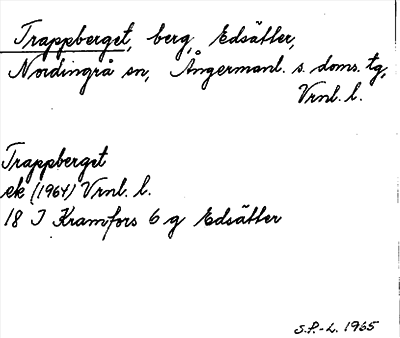 Trappberget, berg, Edsätter,
Nordingrå sn, Ångermanl. s. doms. tg,
Vrnl. l.
Trappberget
ek (1964) Vrnl. l.
18 I Kramfors 6 g Edsätter
S.P.-L. 1965